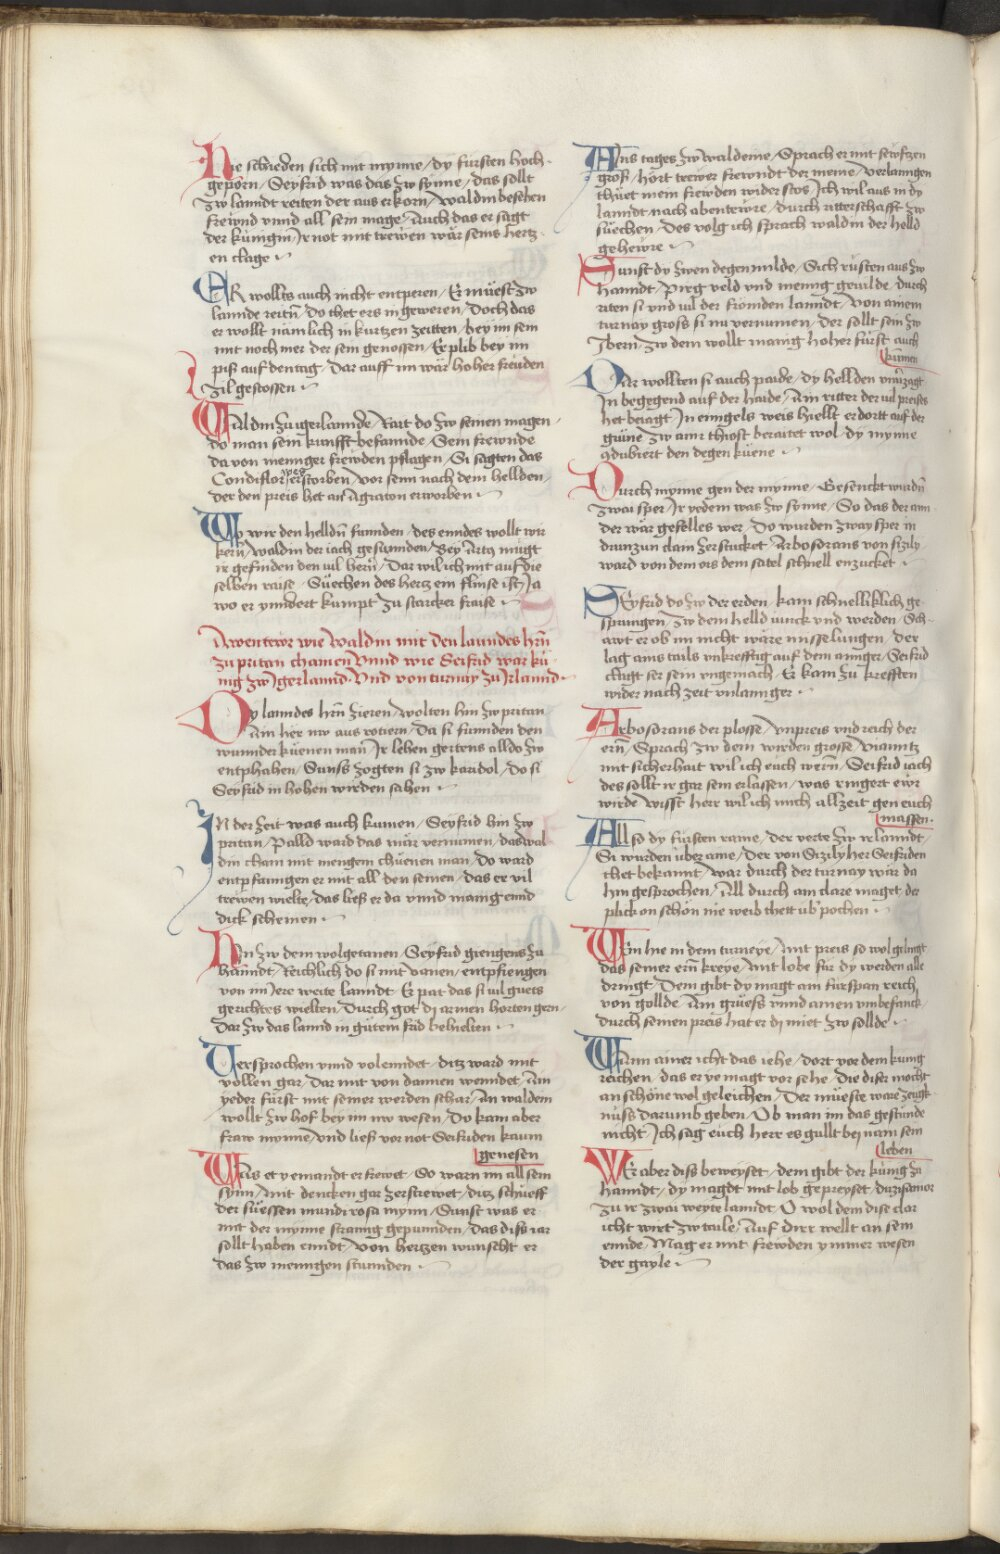 Hie schieden sich mit mynne / dy fürsten hoch-
geporn / Seyfrid was das zw synne / das sollt
zw lanndt reiten der aus erkorn / Waldin besehen
frewnd vnnd all sein mage / Auch das er sagt
der künigin Ir not mit trewen wär seins hertz-
en clage
ER wollts auch nicht entperen / Er müest zw
lannde reitn̄ / do thet ers in geweren / Doch das
er wollt nämlich in kurtzen zeitten / bey im sein
mit noch mer der sein genossen / Er plib bey im
piß auf den tag / Dar auff im wär hoher freuden
zil gestossen
Waldin zu igerlannde / Kart do zw seinen magen /
do man sein kunfft befannde / Sein frewnde
da von menniger frewden pflagen / Si sagten das
Condiflor wer erstorben / vor senn nach dem hellden /
der den preis het an Agraton erworben
Wo wir den helldn̄ funnden / des enndes wollt wir
kern̄ / Waldin der iach gesunnden / Bey Artq mügt
ir gefinden den vil hern̄ / Dar wil ich mit auf die
selben raise / Süechen des hertz ein flinse ist / Ja
wo er ynndert kumpt zu starcker fraise
Awentewr wie Waldin mit den lanndes hrn̄
zu pritan chamen Vnnd wie Seifrid war kü-
nig zw Igerlannd / Vnd von turnay zu Irlannd
Dy lanndes hrn̄ zieren / wolten hin zw pritan
Ain her nw aus rotiern / Da si funnden den
wunnder küenen man / Ir lehen gertens alldo zw
entphahen / Sunss zogten si zw karidol / do si
Seyfrid in hohen wirden sahen
In der zeit was auch kumen / Seyfrid hin zw
pritan / Palld ward das mär vernumen / das wal-
din cham mit mengem chüenen man / do ward
entpfanngen er mit all den seinen / das er vil
trewen wielte / das ließ er da vnnd manig ennd
dick scheinen
Hin zw dem wolgetanen / Seyfrid giengens zu
hanndt / Reichlich do si mit vanen / entpfiengen
von im Iere weite lanndt / Er pat das si vil guets
gerichtes wielten / Durch got dj armen horten gern /
Dar zw das lannd in gütem frid behielten
Versprochen vnnd volenndet / ditz ward mit
vollen gar / Dar mit von dannen wenndet / Ain
yeder fürst mit seiner werden schar / An waldein
wollt zw hof bey im nw wesen / Do kam aber
fraw mynne / vnd ließ vor not Seifriden kaum
genesen
Was et yemandt erfrewet / So warn im all sein
synn / Mit dencken gar zerstrewet / ditz schueff
der süessen mundirosa mynn / Sunst was er
mit der mynne stranng gepunnden / das diss iar
sollt haben ennde / von hertzen wunscht er
das zw mennigen stunnden
Ains tages zw waldeine / Sprach er mit sewftzen
groß / hört trewer frewndt der meine / Verlanngen
thuet mein frewden wider stos / Ich wil aus in dy
lanndt nach abentewre / durch ritterschafft zw
süechen / Des volg ich sprach waldin der helld
gehewre
Sunst dy zwen degen milde / Sich rüsten aus zw
hanndt / Pirg veld vnd mennig gevilde / durch
riten si vnd vil der frömden lanndt / Von ainem
turnay gross si nu vernumen / der sollt sein zw
Ybern / zw dem wollt manig hoher fürst auch
kumen
Dar wollten si auch paide / dy hellden vnuerzagt
In begegend auf der haide / Ain ritter der vil preises
het beiagt / In enngels weis hiellt er dortt auf der
grüne / zw ainr thiost beraitet wol / dy mynne
condubiert den degen küene
Durch mynne gen der mynne / Gesenckt wurdn̄
zwai sper / Ir yedem was zw synne / So das der ann-
der wär geselles wer / Do wurden zway sper in
drunzun clain zerstucket / Arbosorans von sizily
ward von dem ors dem satel schnell enzucket
SEyfrid do zw der erden / kam schnelliklich ge-
sprungen / zw dem helld iunck vnd werden / Sch-
awt er ob im nicht wäre misselungen / der
lag ains tails vnkrefftig auf dem annger / Seifrid
clagt ser sein vngemach / Er kam zu krefften
wider nach zeit vnlannger
Arbosorans der plosse / Vnpreis vnd reich der
ern̄ / Sprach zw dem wirden grosse / Vianntz
mit sicherhait wil ich euch wern̄ / Seifrid iach
des sollt ir gar sein erlassen / was ringert ewr
wirde / wisst herr wil ich mich allzeit gen euch
massen
Allso dy fürsten rame / der verte zw irlanndt /
Si wurden über aine / der von Sizily her Seifriden
thet bekannt / war durch der turnay wär da
hin gesprochen / All durch ain clare maget / der
plick on schön nie weib thett üb'pochen
Wem hie in dem turneye / Mit preis so wol gelingt
das seiner ern̄ kreye / Mit lobe für dy werden alle
dringt / Dem gibt dy magt ain fürspan reich
von gollde / Ain gruess vnnd ainen vmbefanck
durch seinen preis hat er dj miet zw sollde
Wann ainer icht das iehe / dort vor dem künig
reichen / das er ye magt vor sehe / Die diser möcht
an schöne wol geleichen / Der müeste ware zeugk-
nüss darumb geben / Ob man im das gestünde
nicht / Ich sag euch herr es gullt bej nam sein
leben
WEr aber diss beweyset / dem gibt der künig zu
hanndt / dy magdt mit lob gepreyset / dazisamor
zu ir zwai weyte lanndt / O wol dem dise clar
icht wirt zw taile / Auf dirr wellt an sein
ennde / Mag er mit frewden ymmer wesen
der gayle